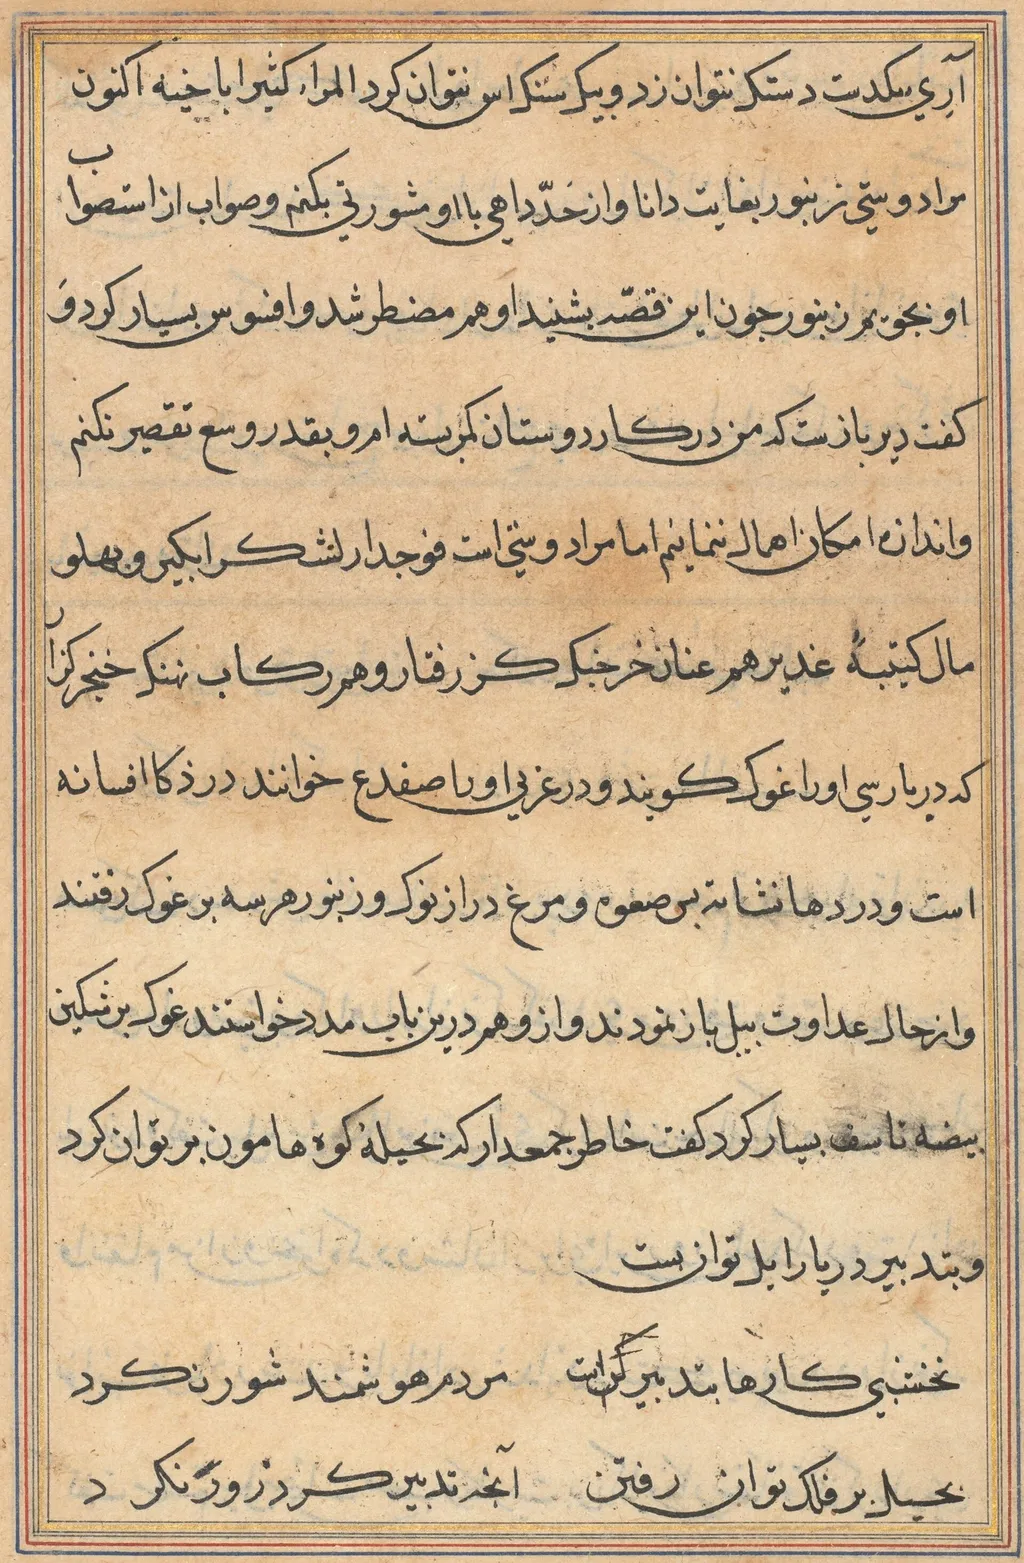 آری بیکدست دستک نتوان زد و بیک سنک اس نتوان کرد المراء کثیر باخیه اکنون
مرا دوستی زنبور بغایت دانا و از حدّ داهی با او مشورتی بکنم و صواب از استصواب
او بجویم زنبور چون این قصّه بشنید او هم مضطر شد و افسوس بسیار کرد و
کفت دیر بازست که من در کار دوستان کمر بسته ام و بقدر وسع تقصیر نکنم
و اندازه امکان اهمال ننمایم اما مرا دوستی است فوجدار لشکر ابکیر و پهلو
مال کتیبهٔ غدیر هم عنان خرجنک کز رفتار و هم رکاب نهنک خنجر کزار
که در پارسی او را غوک کویند و در عربی او را ضفدع خوانند در ذکا افسانه
است و در دها نشانه پس صعوه و مرغ دراز نوک و زنبور هر سه بر غوک رفتند
و از حال عداوت پیل باز نمودند و ازو هم درین باب مدد خواستند غوک بر شکستن
بیضه تاسف بسیار کرد کفت خاطر جمع دار که بحیلهٔ کوه هامون بر توان کرد
و بتدبیر در یا را پل توان بست
نخشبی کارها بتدبیر است مردم هوشمند شور نکرد
بحیل بر فلک توان رفتن آنچه تدبیر کرد زور نکرد